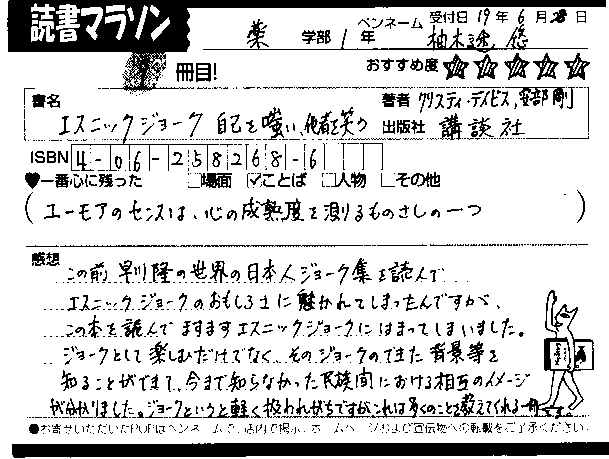 読書マラソン
ペンネーム 受付日 19年 6月 28日
薬 学部 1 年 柚木 悠
1 冊目! おすすめ度 ☆☆☆☆☆
書名 著者 クリスティ・デイビス, 安部 剛
エスニックジョーク 自己を嗤い、他者を笑う 出版社 講談社
ISBN 4-06-258268-6
♥一番心に残った □場面 ☑ことば □人物 □その他
(ユーモアのセンスは、心の成熟度を測るものさしの一つ)
感想
この前、早川隆の世界の日本人ジョーク集を読んで
エスニックジョークのおもしろさに魅かれてしまったんですが、
この本を読んでますますエスニックジョークにはまってしまいました。
ジョークとして楽しむだけでなく、そのジョークのできた背景等を
知ることができて、今まで知らなかった民族間における相互のイメージ
が分かりました。ジョークというと軽く扱われがちですがこれは多くのことを教えてくれる一冊です。
●お寄せいただいたPOPはペンネームで、店内で掲示、ホームページおよび宣伝物への転載をご了承ください。